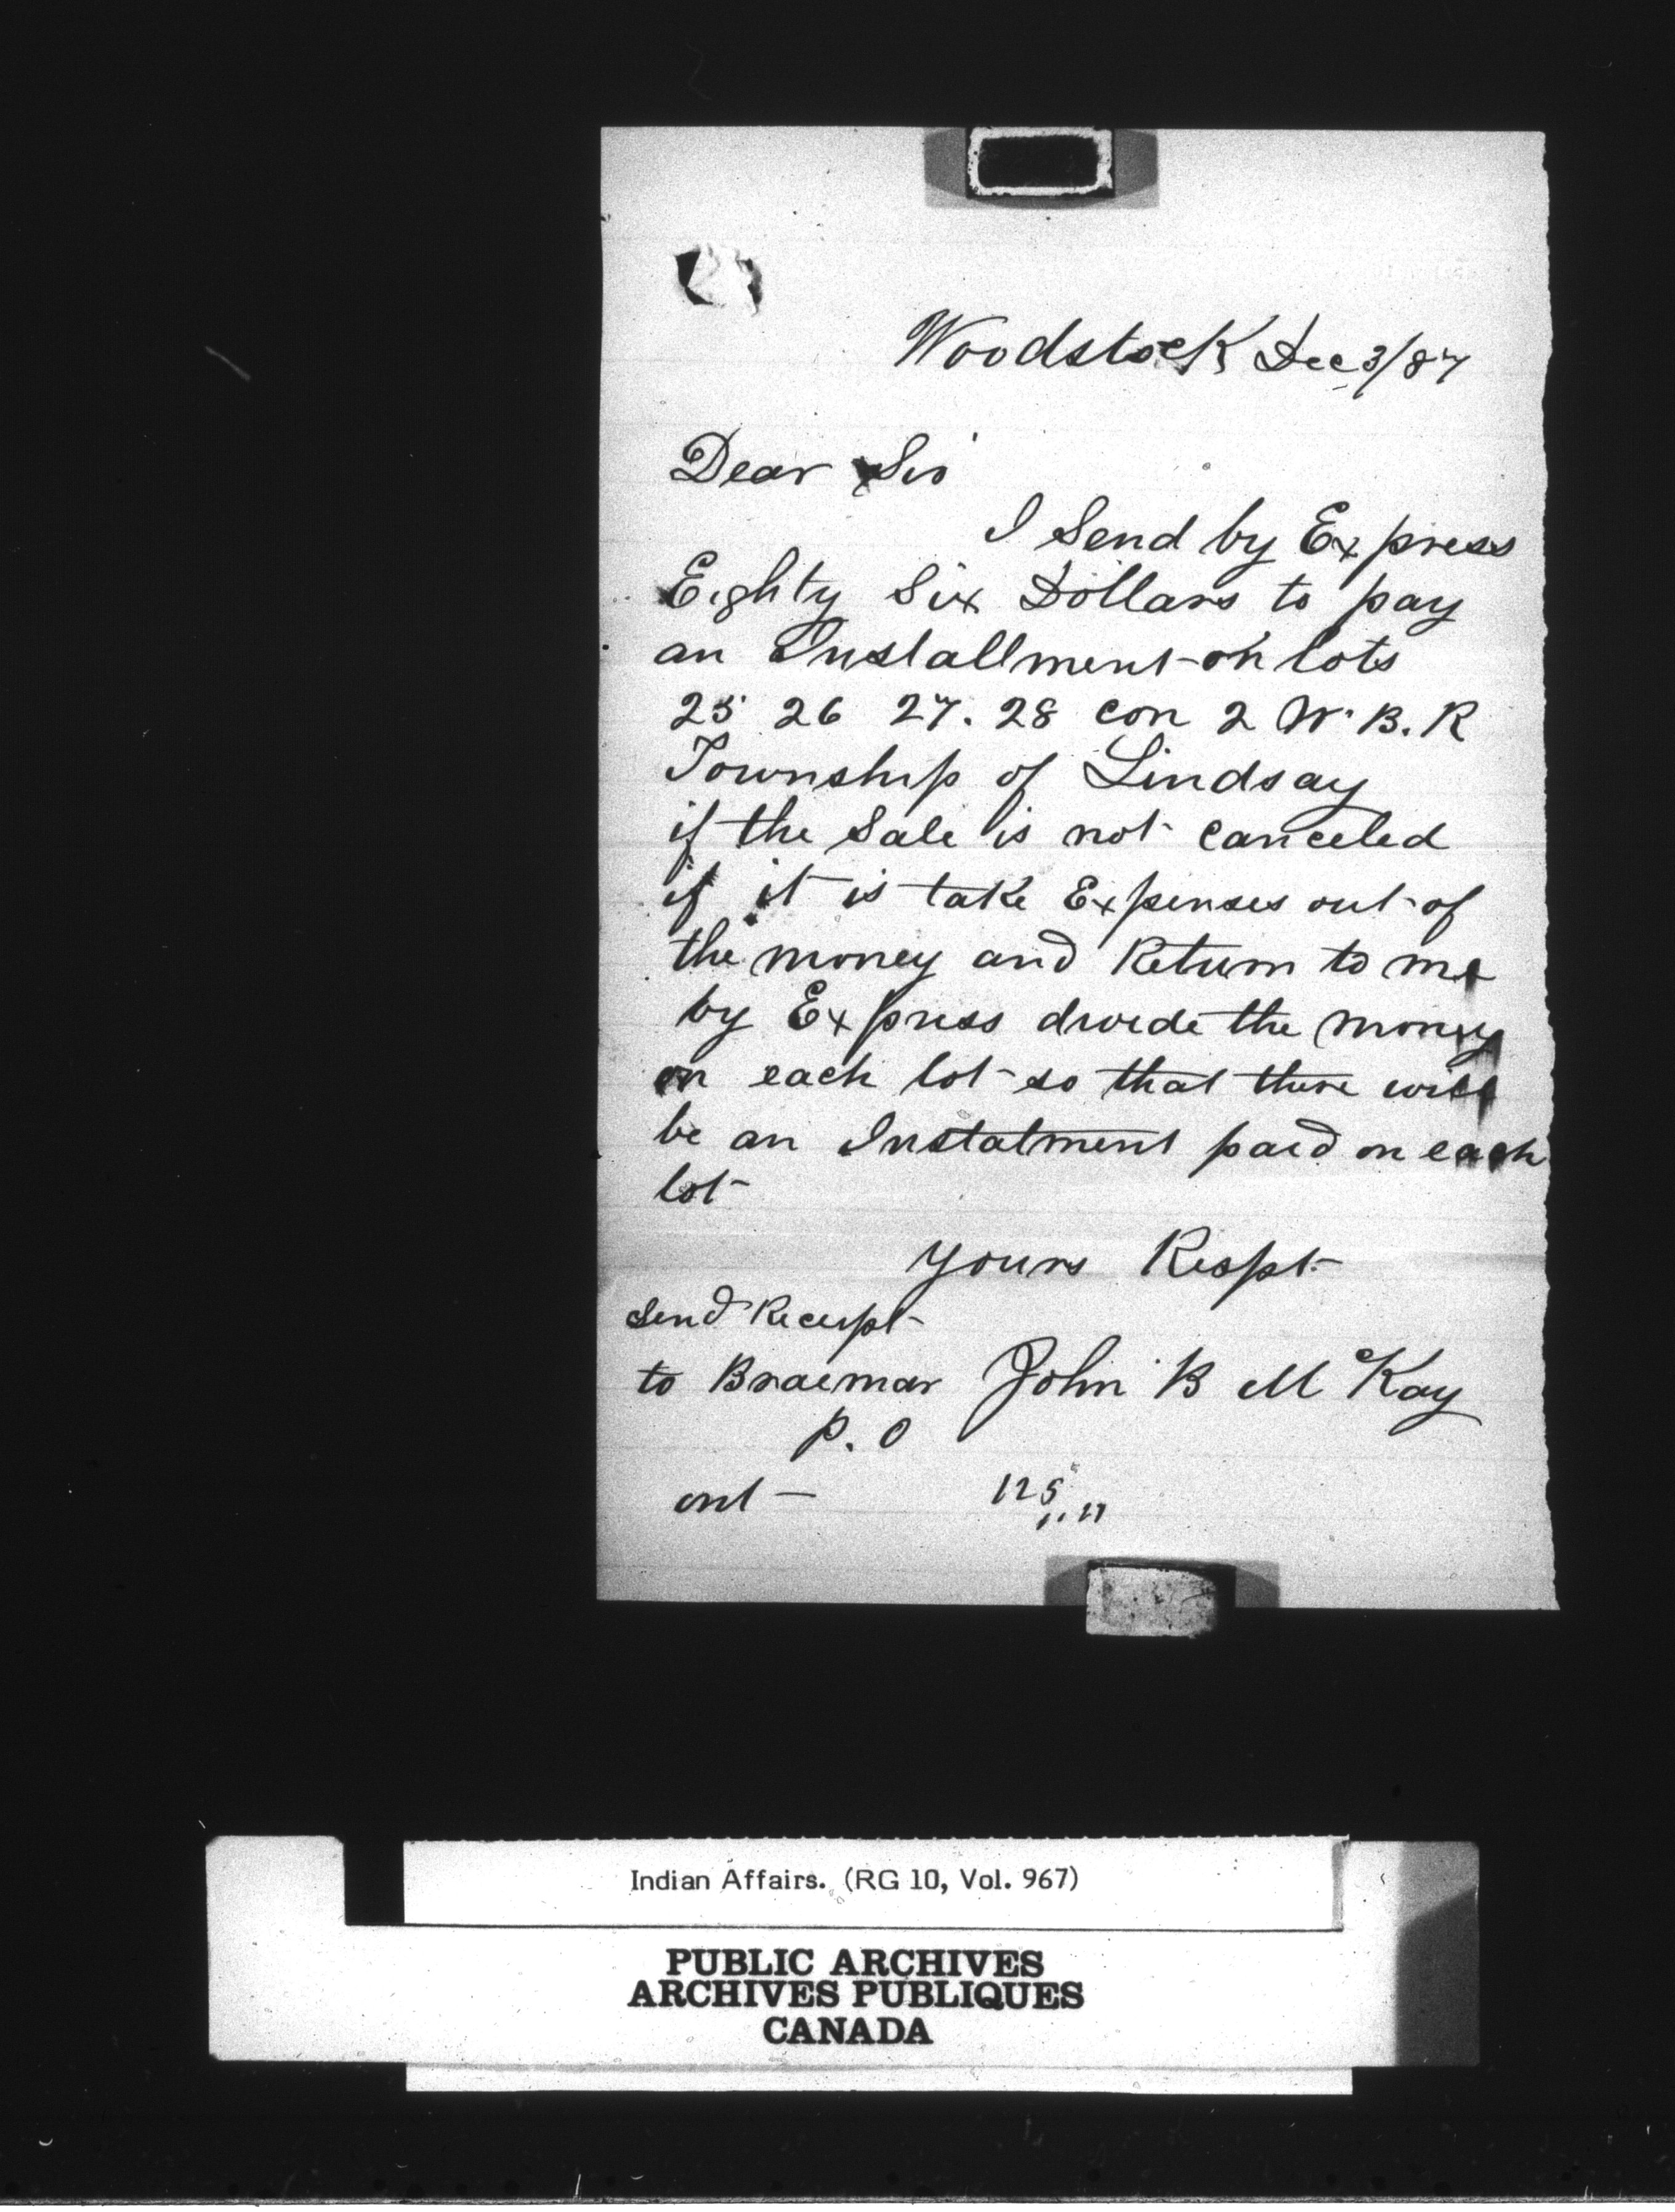 Woodstock Dec 3/87
Dear Sir
I Send by Express
Eighty Six Dollars to pay
an Installment on lots
25 26 27. 28 con 2 W. B. R
Township of Lindsay
if the Sale is not canceled
if it is take Expenses out of
the money and Return to me
by Express divide the money
on each lot so that there will
be an Instalment paid on each
lot
Yours Respt
Send Receipt
to Braemar John B McKay
P. O
ont 125
Indian Affairs. (RG 10, Vol. 967)
PUBLIC ARCHIVES
ARCHIVES PUBLIQUES
CANADA